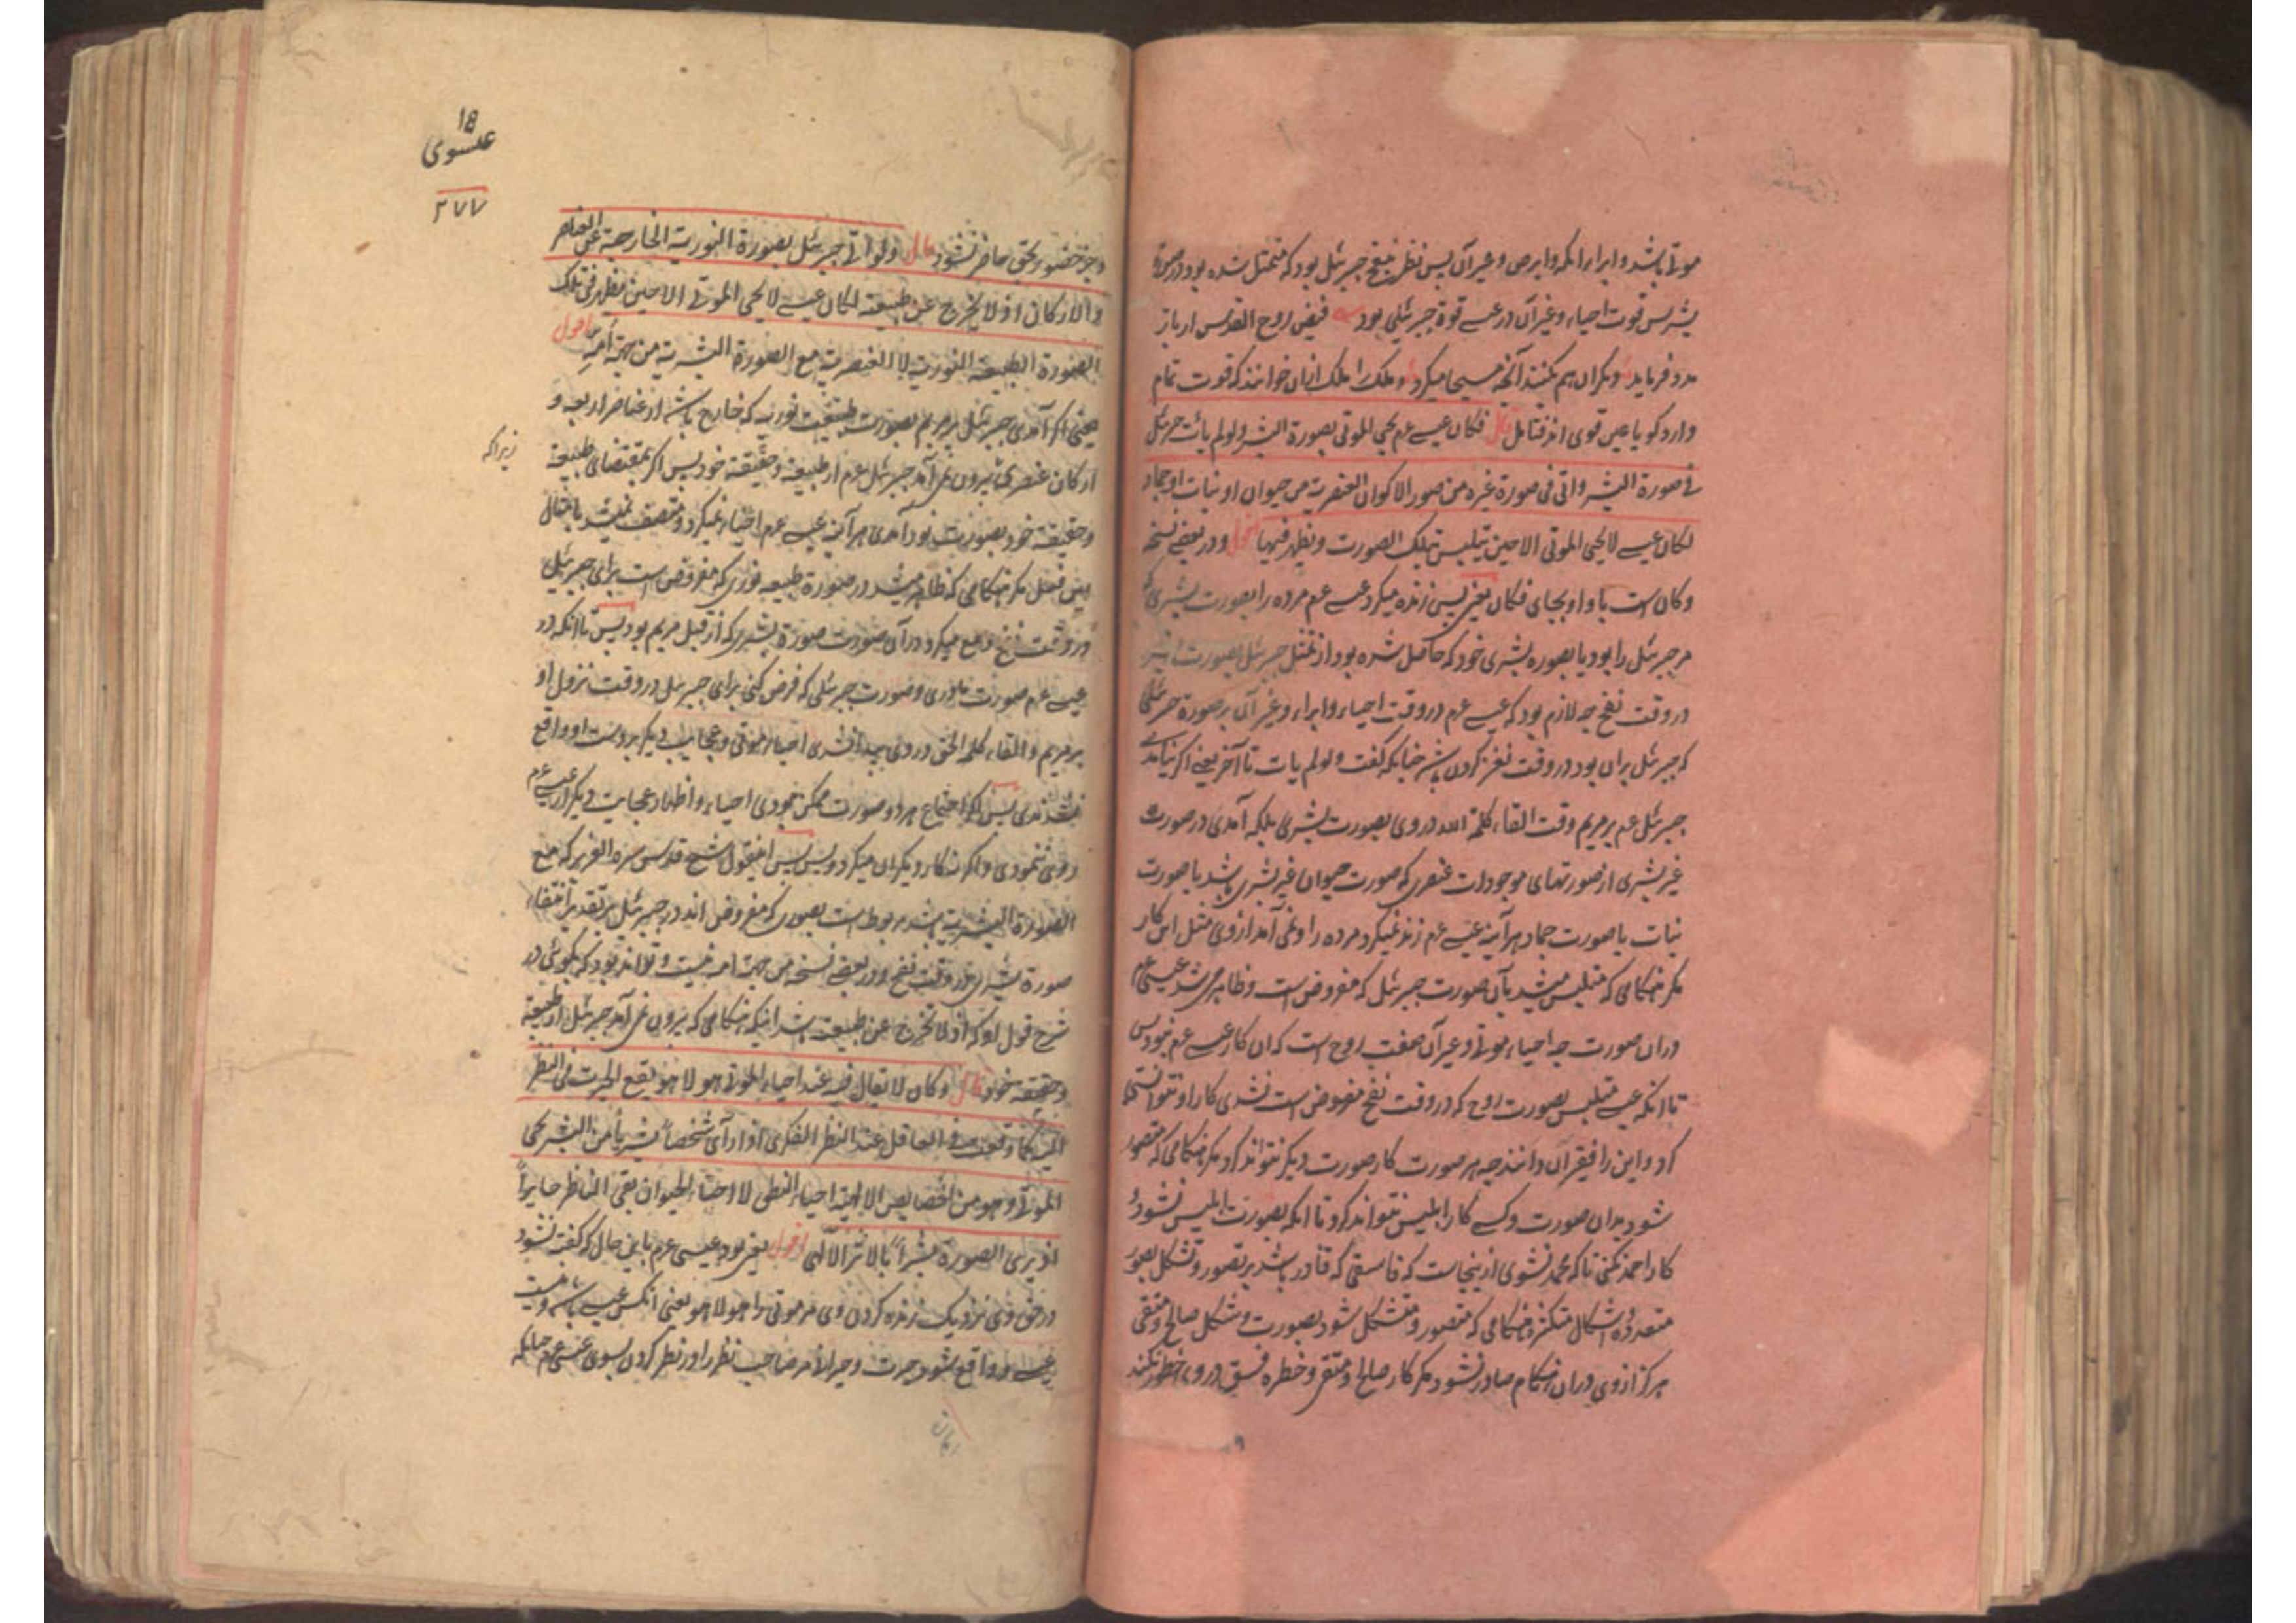 موتی باشد و ابراء اکمه و ابرص و غیر آن پس نظر بنفخ جبرئیل بود که متمثل شده بود در صورة
بشر پس قوت احیاء و غیر آن در عیسے قوة جبرئیلی بود فیض روح القدس ار باز
مدد فرماید دیکران هم بکنند آنچه مسیحا میکرد و ملک را ملک ازان خوانند که قوت تمام
دارد کویا عین قوی اند فتامل قال فکان عیسے عم یحیی الموتی بصورة البشر ولو لم یأت جبرئیل
فی صورة البشر و اتی فی صورة غیره من صور الاکوان العنصریة من حیوان او نبات او جماد
لکان عیسے لا یحیی الموتی الا حین یتلبس بتلک الصورت و یظهر فیها اقول و در بعضے نسخه
و کان است با واو بجای فکان یعنی پس زنده میکرد عیسے عم مرده را بصورت بشری که
مر جبرئیل را بود یا بصوره بشری خود که حاصل شده بود از تمثل جبرئیل بصورت بشر
در وقت نفخ چه لازم بود که عیسے عم در وقت احیاء و ابراء و غیر آن بر صورة جبرئیلی
که جبرئیل بران بود در وقت نفخ کردن باشد چنانکه کفت و لو لم یات تا آخر یعنے اکر نیامدے
جبرئیل عم بر مریم وقت القاء کلمة الله در وی بصورت بشری بلکه آمدی در صورت
غیر بشری از صورتهای موجودات عنصری که صورت حیوان غیر بشری باشد یا صورت
نبات یا صورت جماد هر آینه عیسے عم زنده نمیکرد مرده را و نمی آمد از وی مثل این کار
مکر هنکامی که متلبس میشد بآن صورت جبرئیل که مفروض است و ظاهر می شد عیسی عم
دران صورت چه احیاء موتی و غیر آن صفت روح است که ان کار عیسے عم نبود پس
تا انکه عیسے متلبس بصورت روح که در وقت نفخ مفروض است نشدی کار او نتوانستی
کرد و این را فیقر آن دانند چه هر صورت کار صورت دیکر نتواند کرد مکر هنکامی که متصور
شود بدان صورت و کسے کار ابلیس نتواند کرد تا انکه بصورت ابلیس نشود و
کار احمد نکنی تا که محمد نشوی ازینجاست که فاسقی که قادر باشد بر تصور و تشکل بصور
متعدده و اشکال متکثره هنکامی که متصور و متشکل شود بصورت و شکل صالح و متقی
هرکز از وی دران هنکام صادر نشود مکر کار صالح و متقی و خطره فسق در وی خطور نکند
١٥
عیسوی
٢٧٧
وجز حضور حق حاضر نشود قال ولو اتی جبرئیل بصورة النوریة الخارجة عن العناصر
و الارکان اذ لا یخرج عن طبیعته لکان عیسے لا یحیی الموتی الا حین یظهر فی تلک
الصورة الطبیعیة النوریة لا العنصریة مع الصورة البشریة من جهة امه اقول
یعنی اکر آمدی جبرئیل بر مریم بصورت طبیعیت نوریه که خارج باشد از عناصر اربعه و
ارکان عنصری بیرون نمی آمد جبرئیل عم از طبیعة و حقیقة خود پس اکر بمقتضای طبیعة
زیراکه
و حقیقة خود بصورت نور آمدی هر آینه عیسے عم احیاء نمیکرد و متصف نمیشد بامثال
این فعل مکر هنکامی که ظاهر میشد در صورة طبیعه نوری که مفروض است برای جبرئیل
در وقت نفخ و جمع میکرد در آن صورت صورة بشری که از قبل مریم بود پس تا انکه در
عیسے عم صورت مادری و صورت جبرئیلی که فرض کنی برای جبرئیل در وقت نزول او
بر مریم و القاء کلمة الحق در وی پیدا نشدی احیاء موتی و عجایب دیکر بر دست او واقع
نشدندی پس اکر اجتماع هر دو صورت ممکن نبودی احیاء و اظهار عجایب دیکر از عیسے عم
رونی ننمودی و اکر نه کار دیکران میکرد و بس پس اینقول شیخ قدس سره العزیز که مع
الصورة البشریة باشد مربوط است بصوری که مفروض اند در جبرئیل بر تقدیر انتفاء
صورة بشری در وقت نفخ و در بعضے نسخه من جهة امه نیست و تواند بود که بکوئی در
شرح قول او که اذ لا یخرج عن طبیعته باشد اینکه هنکامی که بیرون نمی آمد جبرئیل از طبیعة
و حقیقة خود قال و کان لا یقال فیه عند احیاء الموتی هو لا هو یقع الحیرت فی النظر
الیه کما وقعت فی العاقل عند النظر الفکری اذا رآی شخصاً بشریاً من البشر یحیی
الموتی و هو من الخصایص الالهیة احیاء النطق لا احیاء الحیوان بقی الناظر حایراً
اذ یری الصورة بشراً بالاثر الآلهی اقول یعنی بود عیسی عم باین حال که کفته نشود
در حق وی نزدیک زنده کردن وی مر موتی را هو لا هو یعنی انکس عیسے باشد و نیست
عیسے و واقع شود حیرت و حیر الامر صاحب نظر را و نظر کردن بسوی عیسی عم چنانکه